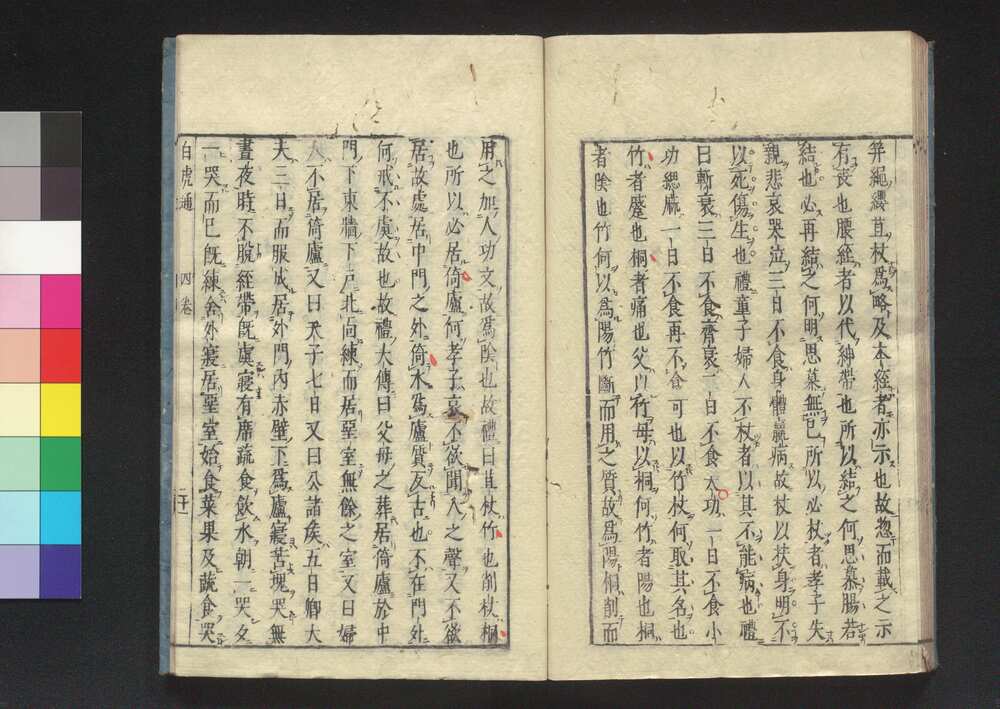 笄繩纓苴杖爲略及本絰者亦示也故惣而載之示
有喪也腰絰者以代紳帶也所以結之何思慕腸若
結也必再結之何明思慕無已所以必杖者孝子失
親悲哀哭泣三日不食身體羸病故杖以扶身明不
以死傷生也禮童子婦人不杖者以其不能病也禮
曰斬衰三日不食齊衰二日不食大功一日不食小
功緦麻一日不食再不食可也以竹杖何取其名也
竹者蹙也桐者痛也父以竹母以桐何竹者陽也桐
者陰也竹何以爲陽竹斷而用之質故爲陽桐削而
用之加人功文故爲陰也故禮曰苴杖竹也削杖桐
也所以必居倚廬何孝子哀不欲聞人之聲又不欲
居故處居中門之外倚木爲廬質反古也不在門外
何戒不虞故也故禮大傳曰父母之葬居倚廬於中
門下東牆下戶北向練而居堊室無餘之室又曰婦
人不居倚廬又曰天子七日又曰公諸侯五日卿大
夫三日而服成居外門內赤壁下爲廬寢苫塊哭無
晝夜時不脫絰帶既虞寢有席疏食飲水朝一哭夕
一哭而已既練舍外寢居堊室始食菜果及蔬食哭
白虎通 四卷 二十一